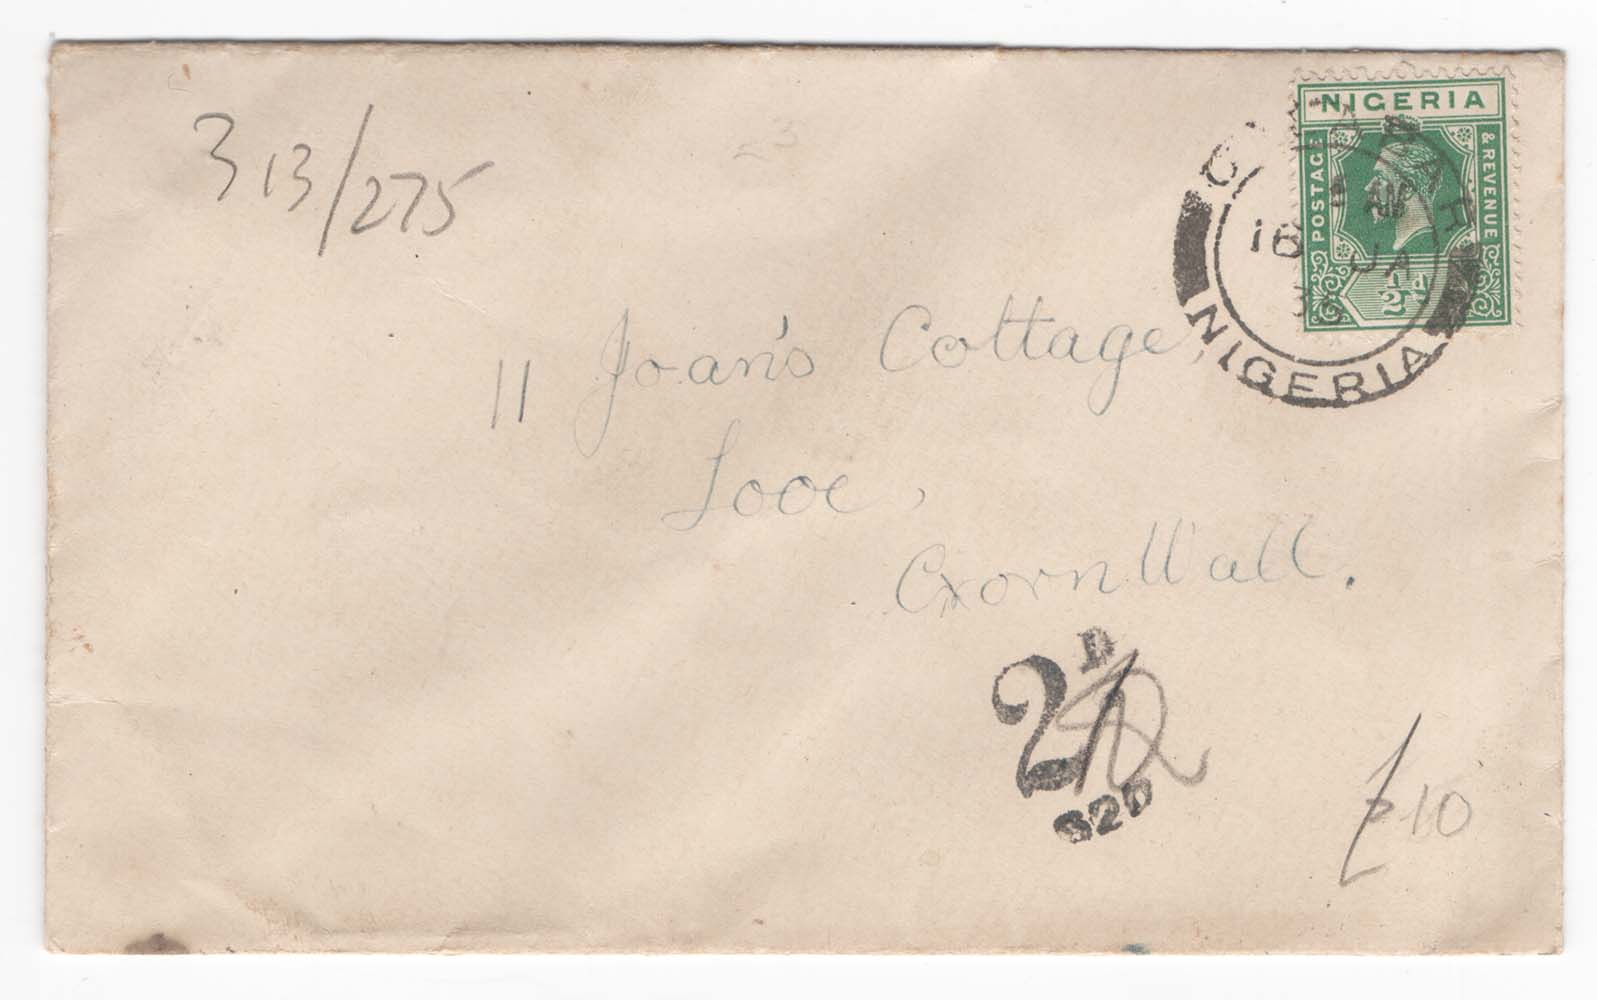 313/275
NIGERIA
POSTAGE & REVENUE
½d
CALABAR
16 JA
35
NIGERIA
11 Joan's Cottage,
Looe,
Cornwall.
2D
S2D
£10